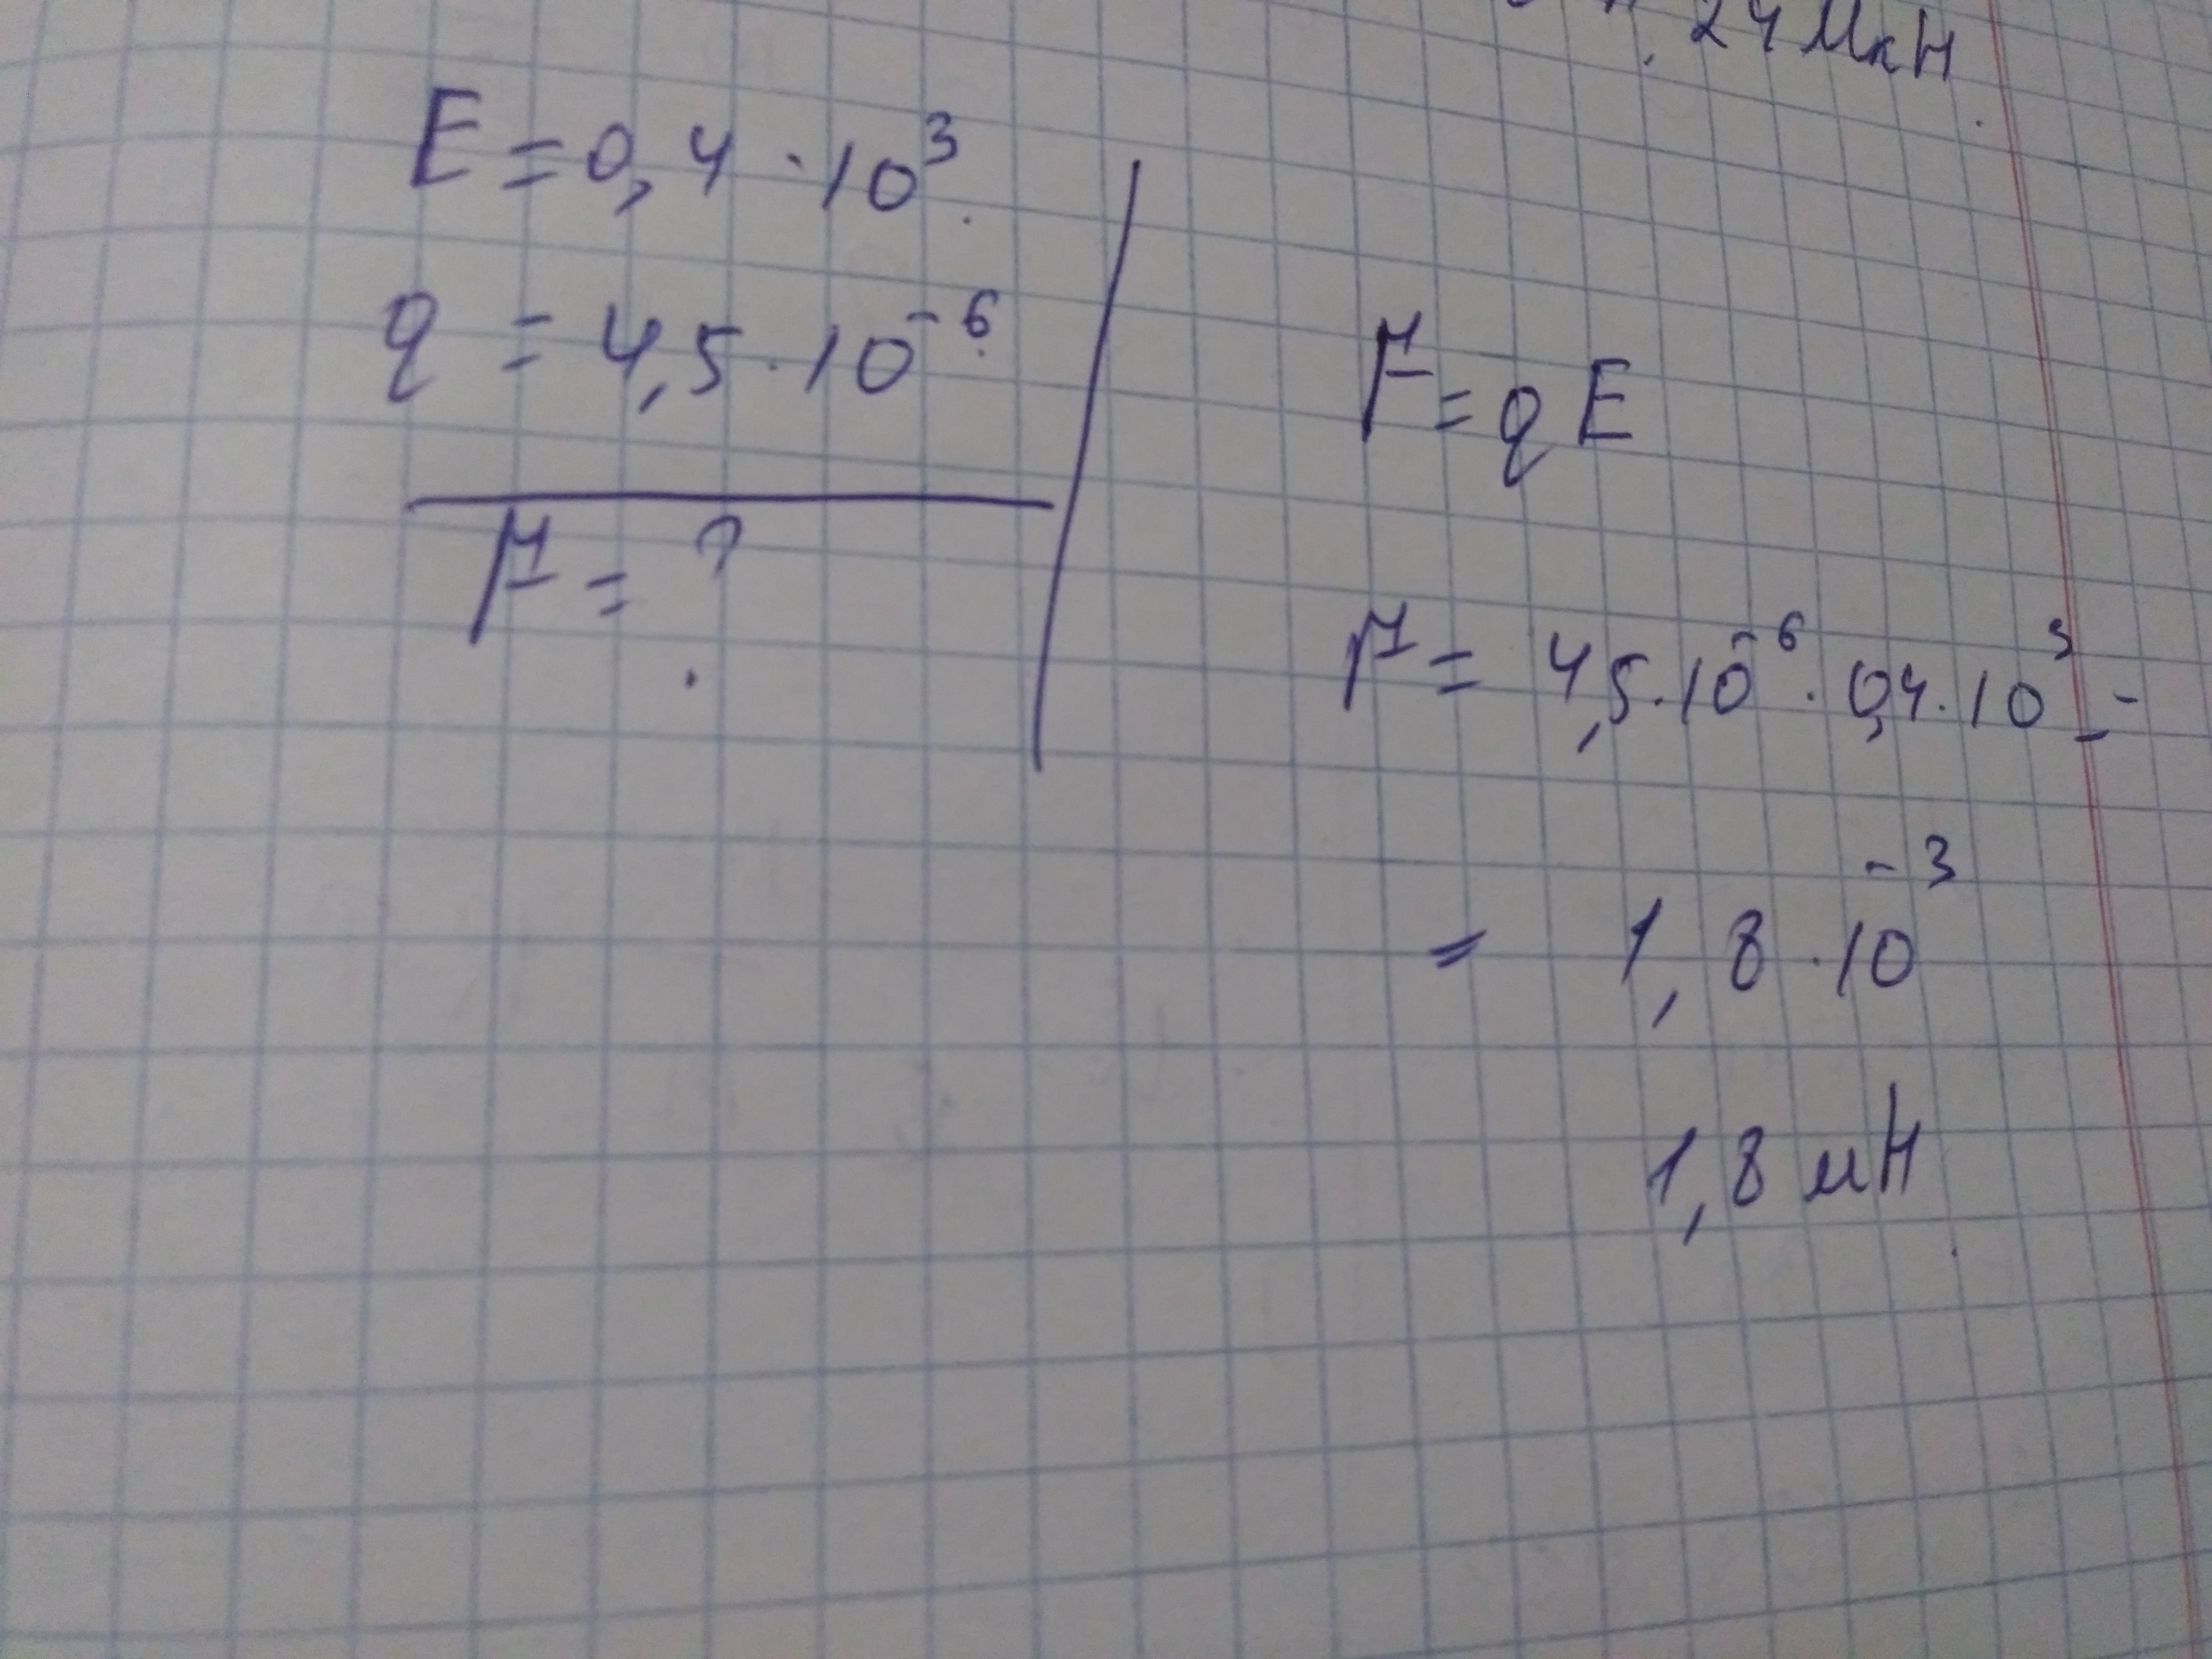 24 МкН
E = 0,4 · 10³
q = 4,5 · 10⁻⁶
F = ?
F = qE
F = 4,5 · 10⁻⁶ · 0,4 · 10³ =
= 1,8 · 10⁻³
1,8 мН